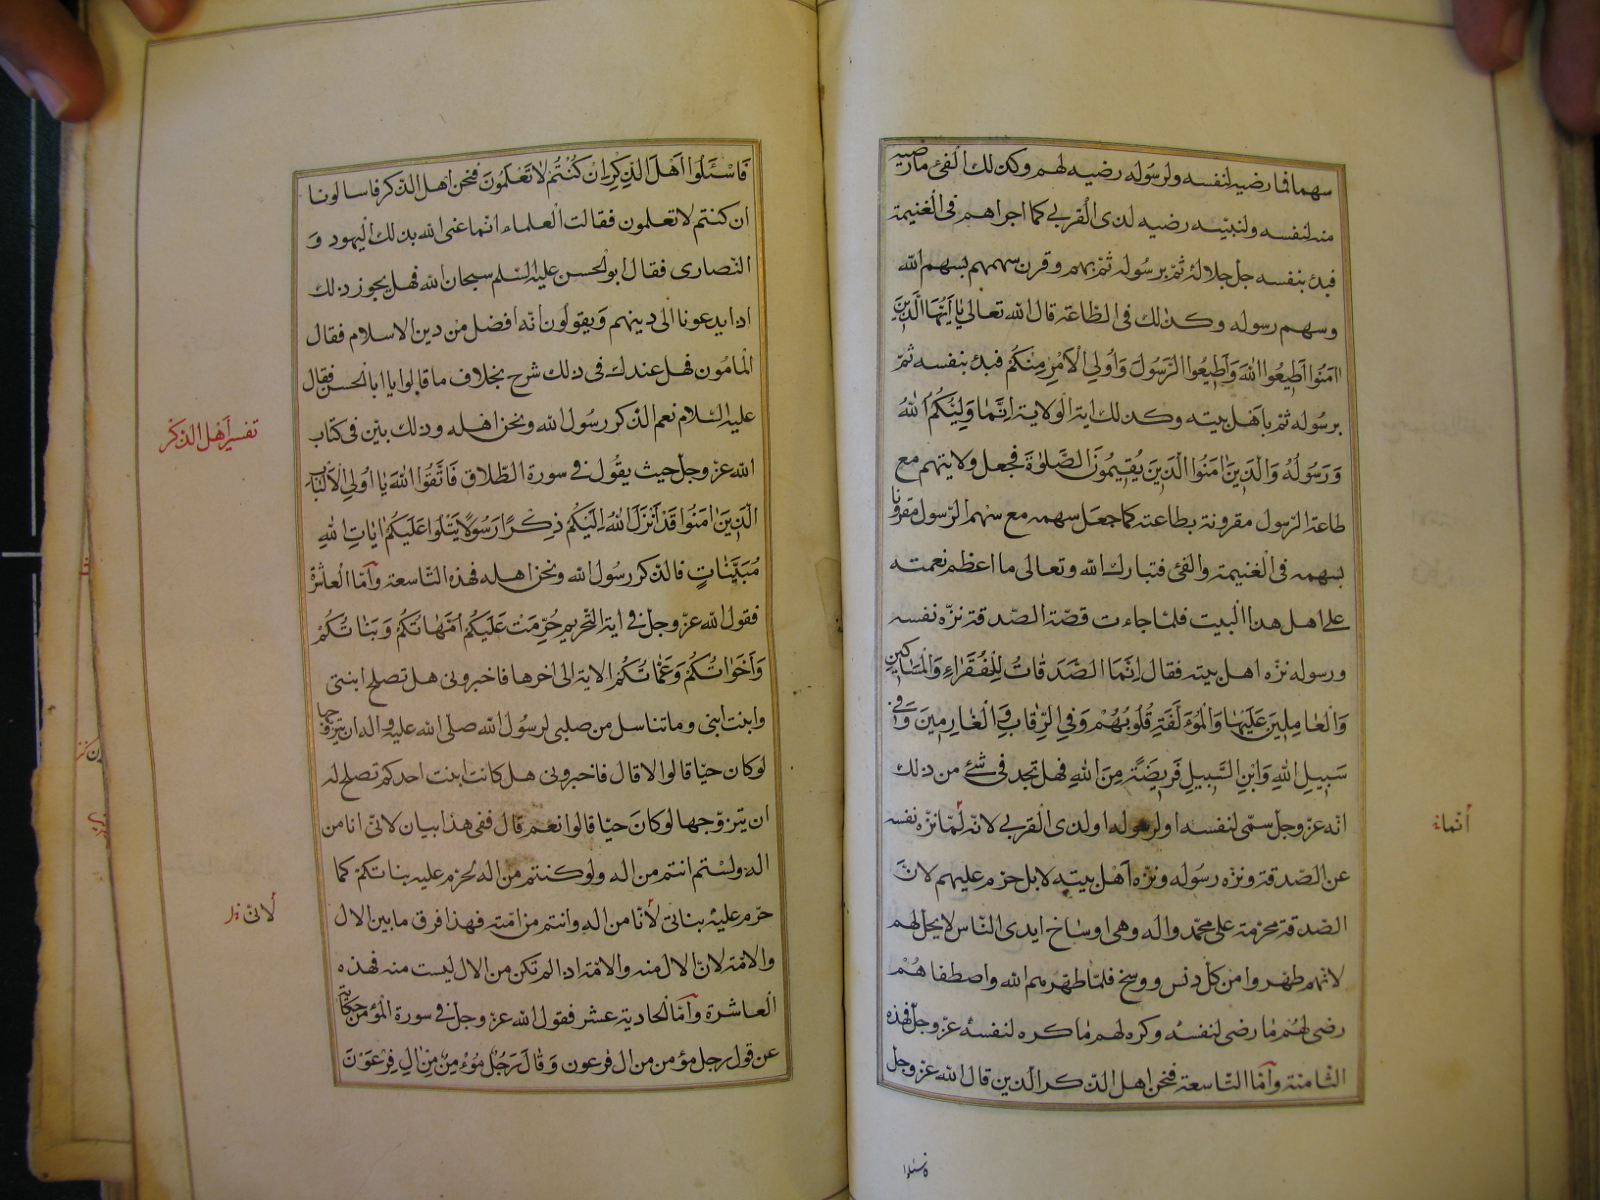 سهما فما رضيه لنفسه ولرسوله رضيه لهم وكذلك الفئ ما رضيه
منه لنفسه ولنبيه رضيه لذى القربى كما اجراهم فى الغنيمة
فبدء بنفسه جل جلاله ثم برسوله ثم بهم وقرن سهمهم بسهم الله
وسهم رسوله وكذلك فى الطاعة قال الله تعالى يا ايها الذين
امنوا اطيعوا الله واطيعوا الرسول واولي الامر منكم فبدء بنفسه ثم
برسوله ثم باهل بيته وكذلك اية الولاية انما وليكم الله
ورسوله والذين امنوا الذين يقيمون الصلوة فجعل ولايتهم مع
طاعة الرسول مقرونة بطاعته كما جعل سهمه مع سهم الرسول مقرونا
بسهمه فى الغنيمة والفئ فتبارك الله وتعالى ما اعظم نعمته
على اهل هذا البيت فلما جاءت قصة الصدقة نزه نفسه
ورسوله نزه اهل بيته فقال انما الصدقات للفقراء والمساكين
والعاملين عليها والمؤلفة قلوبهم وفي الرقاب والغارمين وفي
سبيل الله وابن السبيل فريضة من الله فهل تجد فى شئ من ذلك
انه عز وجل سمى لنفسه او لرسوله او لذى القربى لانه لما نزه نفسه
عن الصدقة ونزه رسوله ونزه اهل بيته لا بل حرم عليهم لان
الصدقة محرمة على محمد واله وهى اوساخ ايدى الناس لا يحل لهم
لانهم طهروا من كل دنس ووسخ فلما طهرهم الله واصطفاهم
رضى لهم ما رضى لنفسه وكره لهم ما كره لنفسه عز وجل فهذه
الثامنة واما التاسعة فنحن اهل الذكر الذين قال الله عز وجل
فاسئلوا اهل الذكر ان كنتم لا تعلمون فنحن اهل الذكر فاسالونا
ان كنتم لا تعلمون فقالت العلماء انما عنى الله بذلك اليهود و
النصارى فقال ابو الحسن عليه السلم سبحان الله فهل يجوز ذلك
اذا يدعونا الى دينهم ويقولون انه افضل من دين الاسلام فقال
المامون فهل عندك فى ذلك شرح بخلاف ما قالوا يا ابا الحسن فقال
عليه السلام نعم الذكر رسول الله ونحن اهله وذلك بين فى كتاب
الله عز وجل حيث يقول في سورة الطلاق فاتقوا الله يا اولي الالباب
الذين امنوا قد انزل الله اليكم ذكرا رسولا يتلوا عليكم ايات الله
مبينات فالذكر رسول الله ونحن اهله فهذه التاسعة واما العاشرة
فقول الله عز وجل في اية التحريم حرمت عليكم امهاتكم وبناتكم
واخواتكم وعماتكم الاية الى اخرها فاخبرونى هل تصلح ابنتى
وابنت ابنى وما تناسل من صلبى لرسول الله صلى الله عليه واله ان يتزوجها
لو كان حيا قالوا لا قال فاخبرونى هل كانت ابنت احدكم تصلح له
ان يتزوجها لو كان حيا قالوا نعم قال ففى هذا بيان لانى انا من
اله ولستم انتم من اله ولو كنتم من اله لحرم عليه بناتكم كما
حرم عليه بناتى لانا من اله وانتم من امته فهذا فرق ما بين الال
والامة لان الال منه والامة اذا لم تكن من الال ليست منه فهذه
العاشرة واما الحادية عشر فقول الله عز وجل في سورة المؤمن حكاية
عن قول رجل مؤمن من ال فرعون وقال رجل مؤمن من ال فرعون
تفسير اهل الذكر